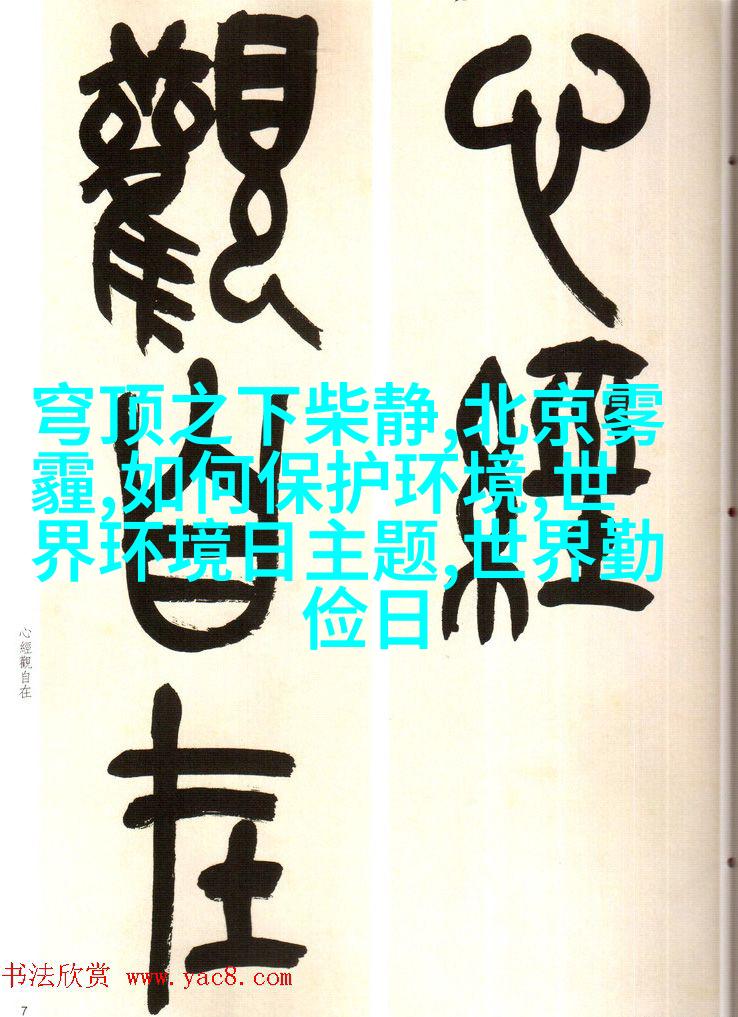 心經
觀自在
穹顶之下柴静,北京雾
霾,如何保护环境,世
界环境日主题,世界勤
俭日
心經觀自在
书法欣赏 www.yac8.com
7